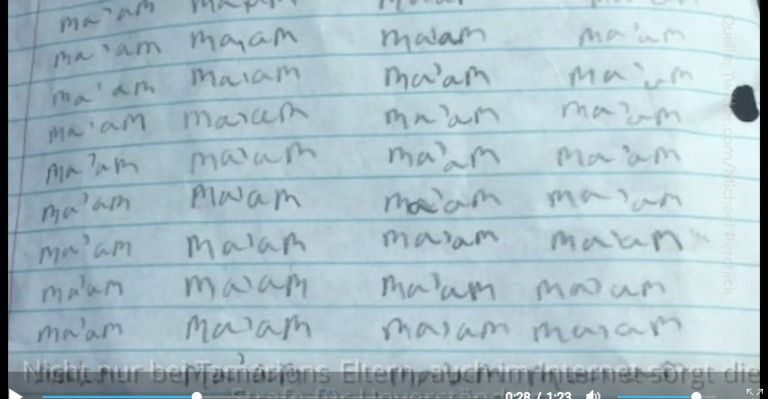 ma'am
ma'am ma'am ma'am ma'am
ma'am ma'am ma'am ma'am
ma'am ma'am ma'am ma'am
ma'am ma'am ma'am ma'am
ma'am ma'am ma'am ma'am
ma'am ma'am ma'am ma'am
ma'am ma'am ma'am ma'am
ma'am ma'am ma'am ma'am
Nicht nur bei Tamarions Eltern, auch im Internet sorgt die
0:28 / 1:23